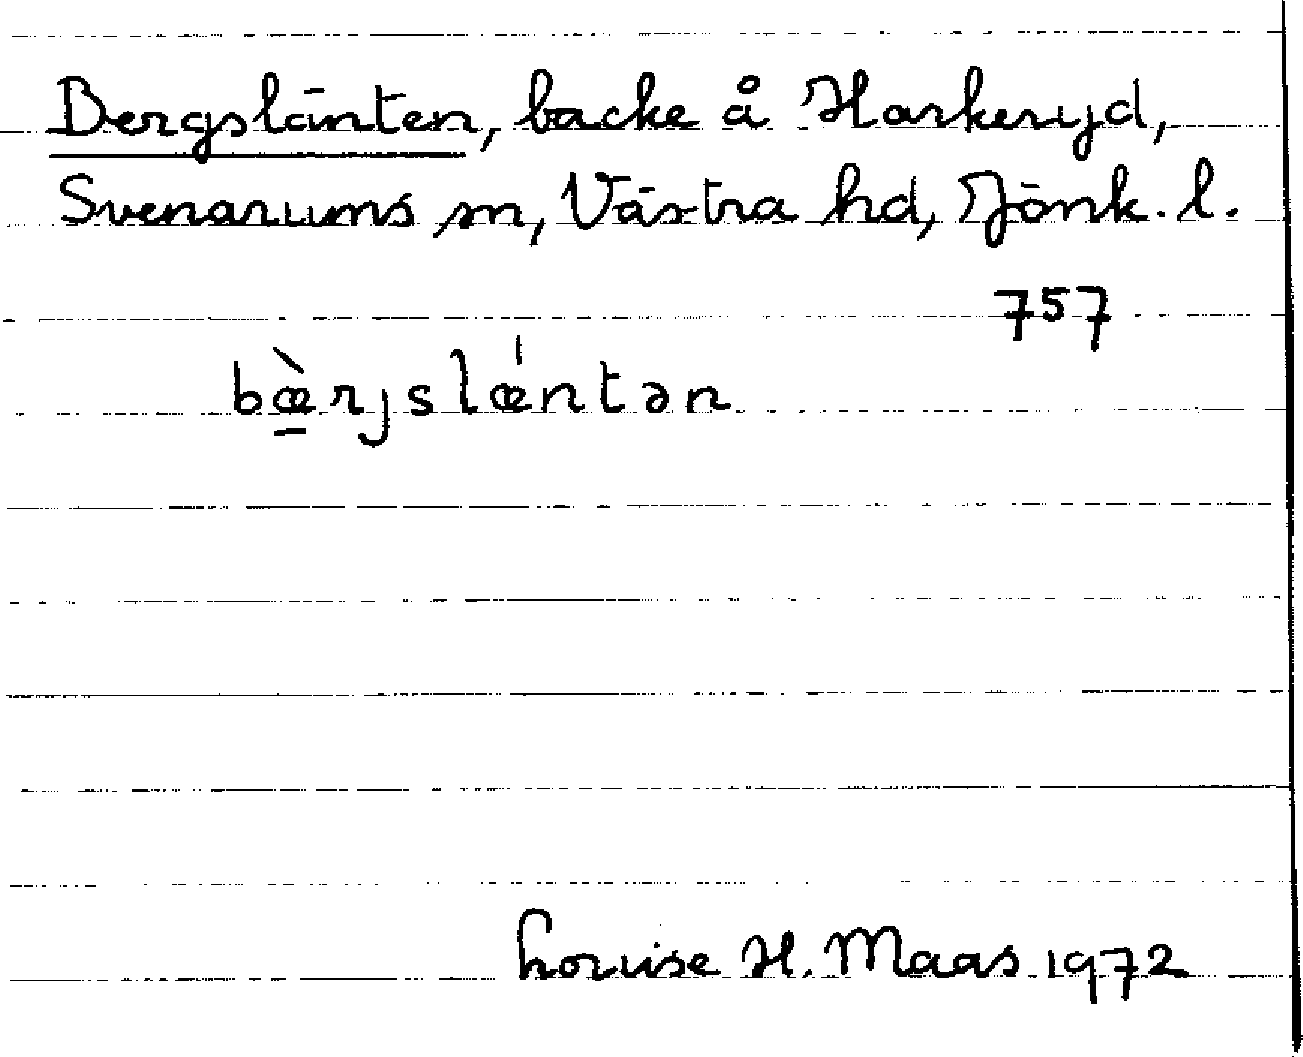 Bergslänten, backe å Harkeryd,
Svenarums sn, Västra hd, Jönk. l.
757
bæ̠̀rjslǽntən
Louise H. Maas 1972